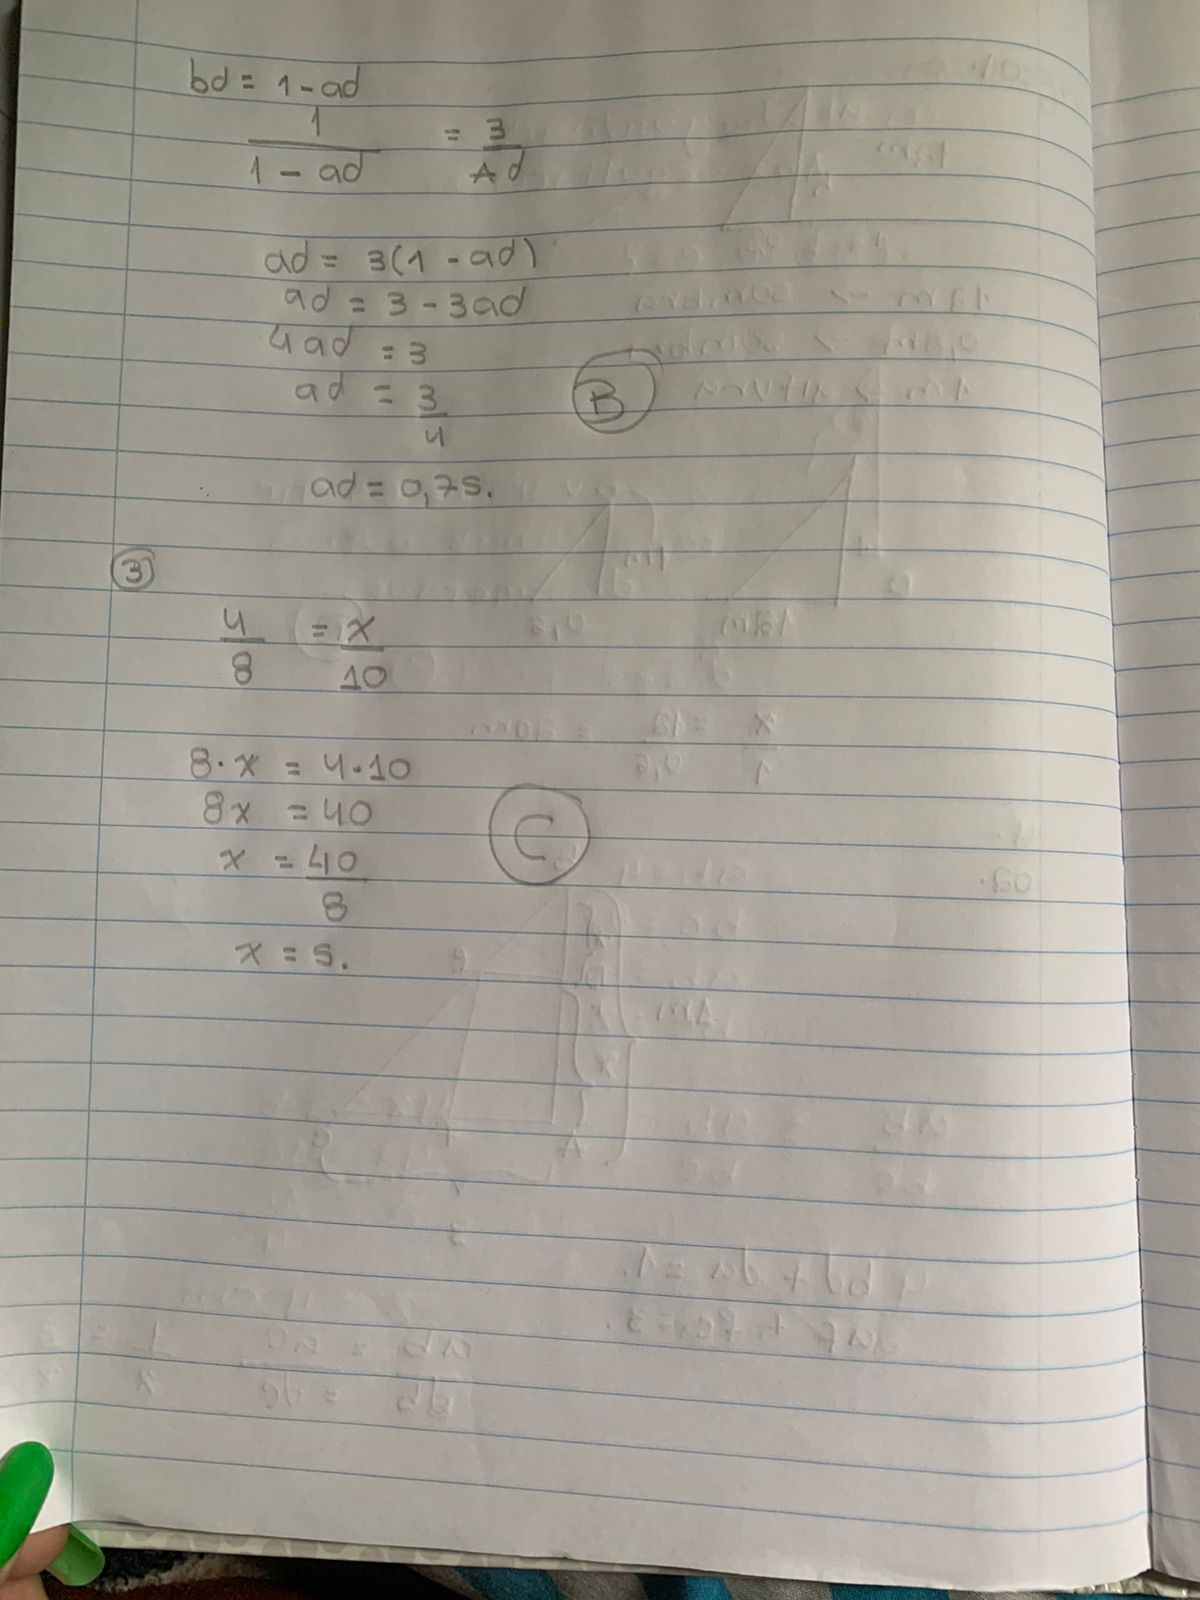 bd = 1 - ad
1/(1 - ad) = 3/Ad
ad = 3(1 - ad)
ad = 3 - 3ad
4ad = 3
ad = 3/4
B
ad = 0,75.
3
4/8 = x/10
8·x = 4·10
8x = 40
C
x = 40/8
x = 5.